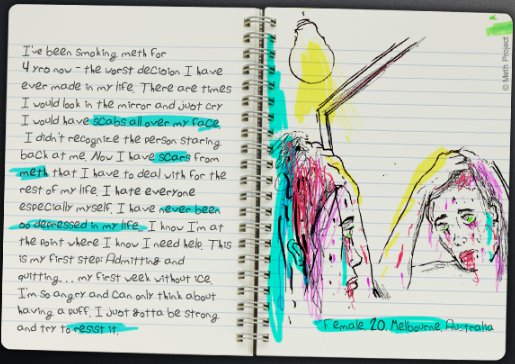 I've been smoking meth for
4 yrs now - the worst decision I have
ever made in my life. There are times
I would look in the mirror and just cry
I would have scabs all over my face.
I didn't recognize the person staring
back at me. Now I have scars from
meth that I have to deal with for the
rest of my life. I hate everyone
especially myself. I have never been
so depressed in my life. I know I'm at
the point where I know I need help. This
is my first step: Admitting and
quitting... my first week without ice.
I'm so angry and can only think about
having a puff. I just gotta be strong
and try to resist it.
© Meth Project
Female, 20, Melbourne, Australia